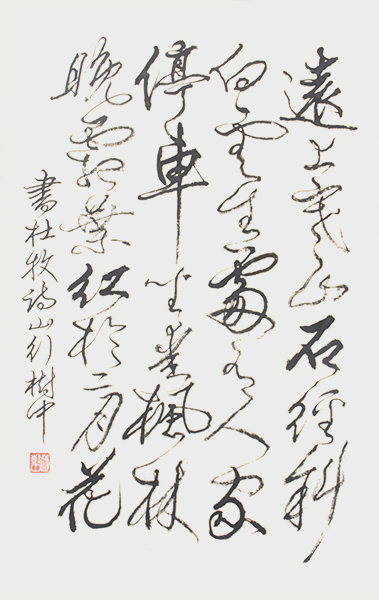 遠上寒山石徑斜
白雲生處有人家
停車坐愛楓林
晚霜葉紅於二月花
書杜牧詩山行樹中